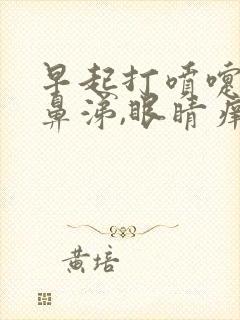 早起打喷嚏
鼻涕,眼睛痒
黄培